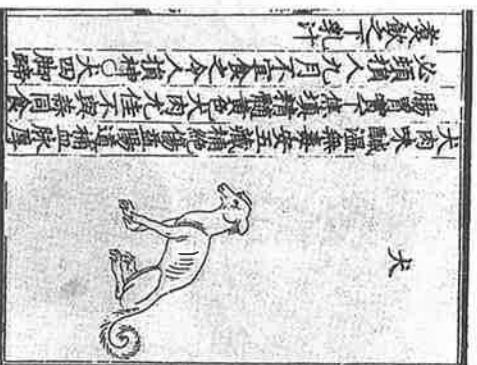 犬
犬肉味鹹溫無毒安五藏補絕傷益陽道補血脉厚
腸胃實下焦填精髓黃色犬肉尤佳不與蒜同食
必頓損人九月不宜食之令人損神○犬四脚蹄
煮飲之下乳汁